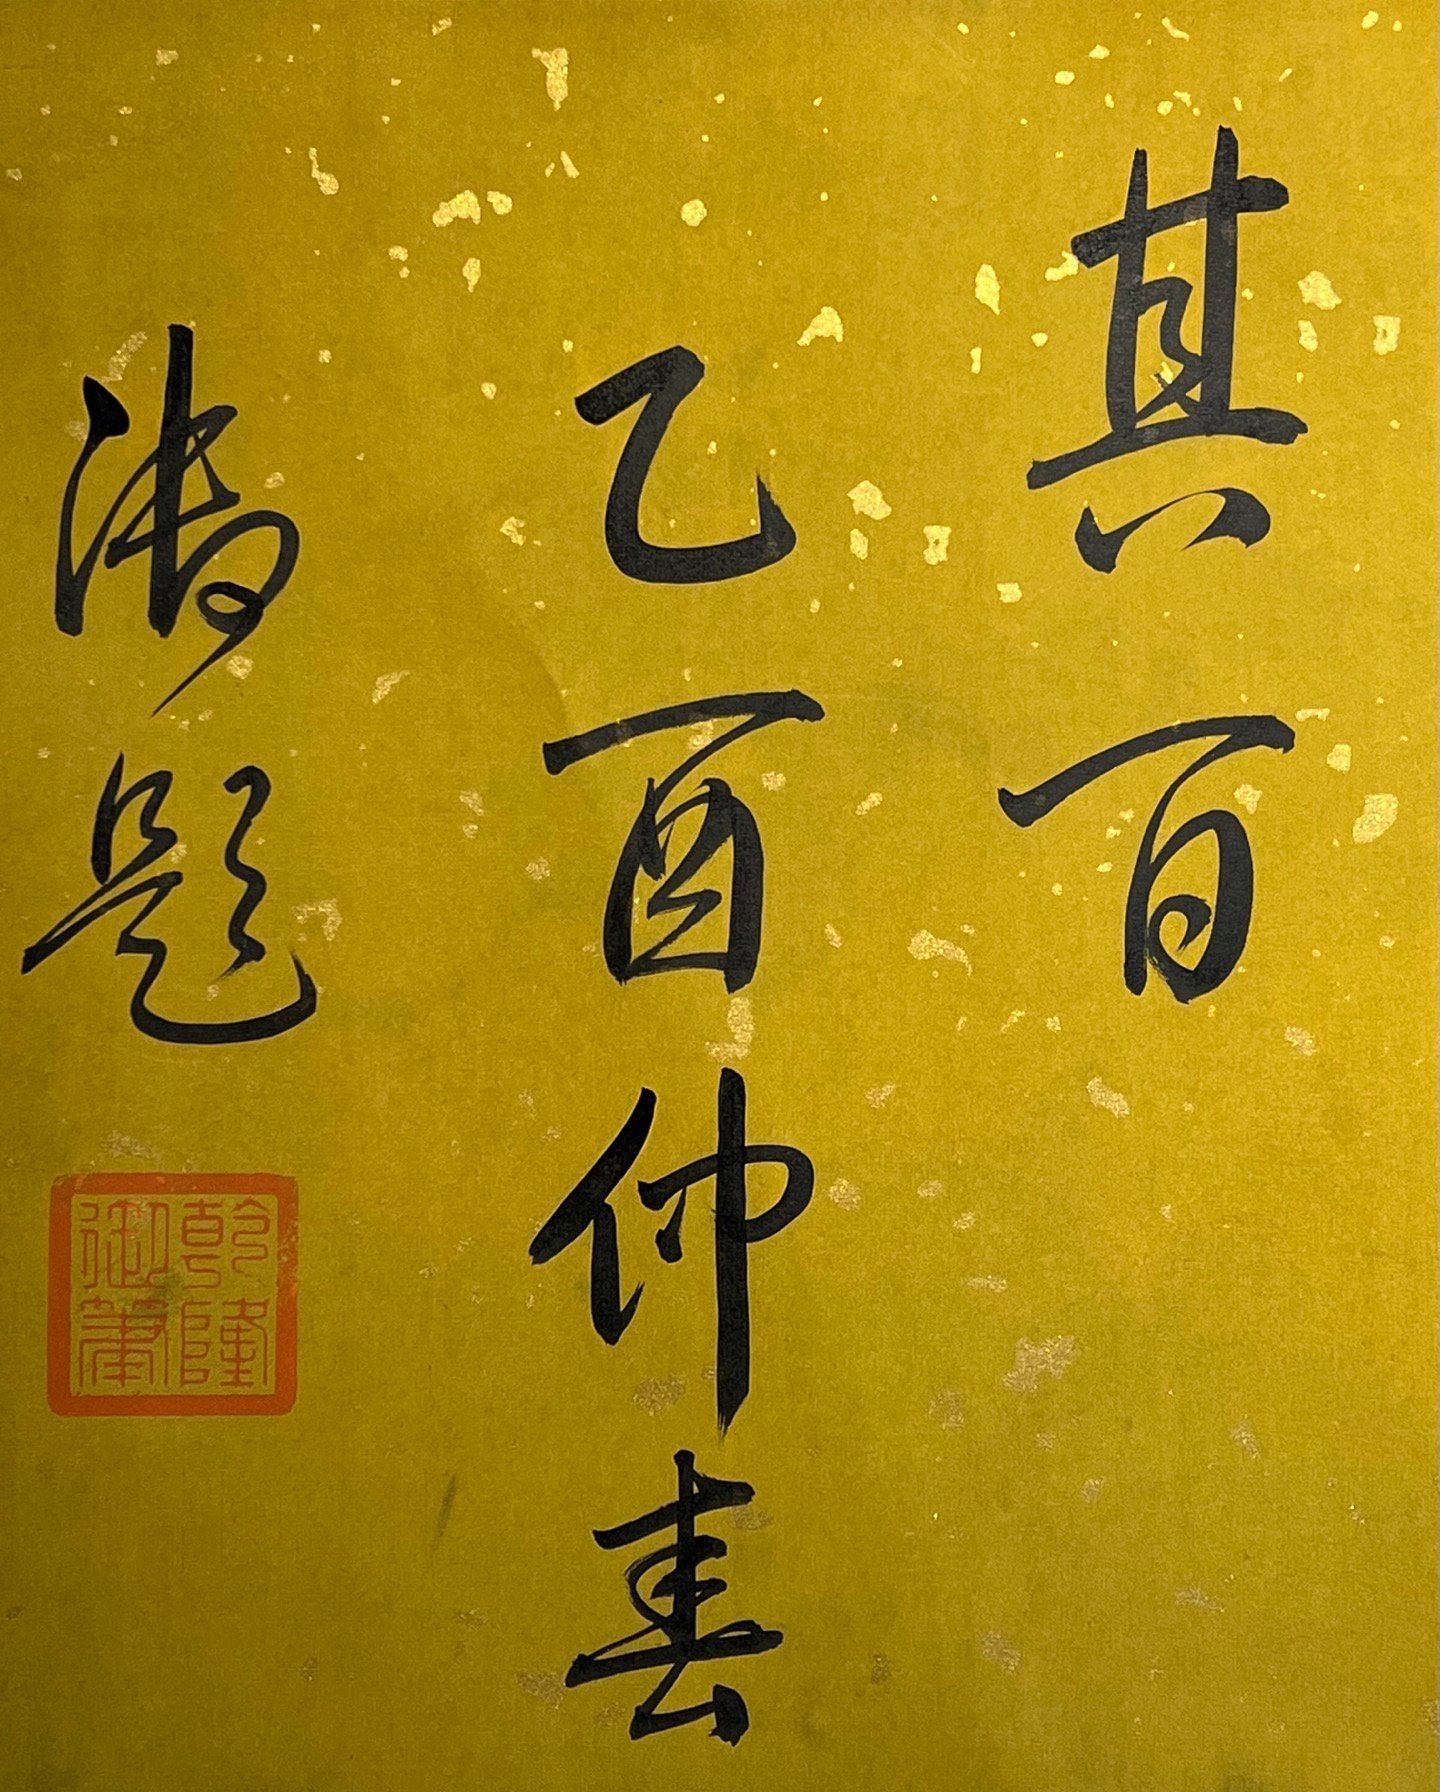 其百
乙酉仲春
御題
乾隆
御筆